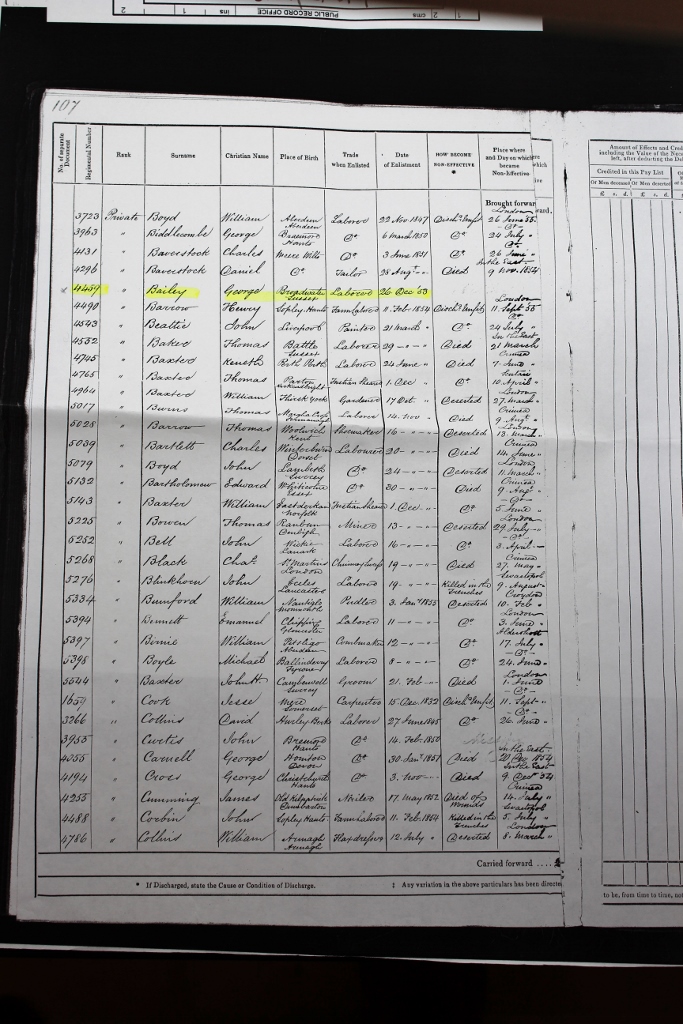 PUBLIC RECORD OFFICE
ins
1
2
cms
1
2
107
No. of separate Document
Regimental Number
Rank
Surname
Christian Name
Place of Birth
Trade when Enlisted
Date of Enlistment
HOW BECOME NON-EFFECTIVE *
Place where and Day on which became Non-Effective
Brought forward
3723 Private Boyd William Aberdeen Aberdeen Laborer 22 Nov 1847 London 26 June 55
3963 " Biddlecombe George Hants Do 6 March 1850 Do 24 July "
4131 " Baverstock Charles Meere Wilts Do 3 June 1851 Do 26 June "
4296 " Baverstock Daniel Do Tailor 28 Augt " Died In the East 9 Nov 1854
4459 " Bailey George Broadwater Sussex Laborer 26 Dec 53
4490 " Barrow Henry Sopley Hants Farm Laborer 11 Feb 1854 London 11 Sept 55
4543 " Beattie John Liverpool Painter 21 March " Do 24 July "
4552 " Baker Thomas Battle Sussex Laborer 29 " " Died In the East 21 March
4745 " Baxter Keneth Perth Perth Laborer 24 June " Died Crimea 7 June "
4765 " Baxter Thomas 1 Dec " Do 10 April "
4964 " Baxter William Thirsk York Gardener 17 Oct " Deserted London 27 March
5017 " Burns Thomas Laborer 14 Nov " Died Crimea 9 Augt "
5028 " Barrow Thomas Woolwich Kent Shoemaker 16 " " Deserted London 13 March
5039 " Bartlett Charles Winterbourn Dorset Labourer 20 " " Died Crimea 14 June "
5079 " Boyd John Lambeth Surrey Do 24 " " Deserted London 11 March
5132 " Bartholomew Edward Essex Do 30 " " Died Crimea 9 Augt "
5143 " Baxter William East Dereham Norfolk 1 Dec " Do Do 5 June "
5225 " Bowen Thomas Denbigh Miner 13 " " Deserted London 29 July "
5252 " Bell John Lanark Laborer 16 " " Do Do 3 April "
5268 " Black Chas St Martins London 19 " " Died Crimea 27 May "
5276 " Blinkhorn John Eccles Lancaster Laborer 19 " " Killed in the Trenches Sevastopol 9 August "
5334 " Bumford William Nantiglo Monmouth Pudler 3 Jany 1855 Deserted Croydon 10 Feb "
5394 " Bennett Emanuel Chipping Gloucester Laborer 11 " " Do London 3 June "
5397 " Birnie William Aberdeen Combmaker 12 " " Do Aldershott 17 July "
5398 " Boyle Michael Ballinderry Tyrone Laborer 8 " " Do Do 24 June "
5544 " Baxter John H Camberwell Surrey Groom 21 Feb " Died London 1 June "
1659 " Cook Jesse Somerset Carpenter 15 Dec 1832 Do 11 Sept "
3266 " Collins David Hurley Berks Laborer 27 June 1845 Do Do 26 June "
3955 " Curtis John Hants Do 14 Feb 1850
4055 " Carnell George Honiton Devon Do 30 Jany 1851 Died In the East 20 Dec 1854
4194 " Cross George Christchurch Hants Do 3 Nov " Died In the East 9 Dec 54
4255 " Cumming James Old Kilpatrick Dumbarton 17 May 1852 Died of Wounds Crimea 14 July "
4488 " Corbin John Sopley Hants Farm Laborer 11 Feb 1854 Killed in the Trenches Sevastopol 5 July "
4786 " Collins William Armagh Armagh Hairdresser 12 July " Deserted London 8 March "
Carried forward ....
* If Discharged, state the Cause or Condition of Discharge.
‡ Any variation in the above particulars has been directe
Amount of Effects and Credi
including the Value of the Nece
left, after deducting the De
Credited in this Pay List
Of Men deceased
Of Men deserted
£ s. d. £ s. d.
to be, from time to time, not